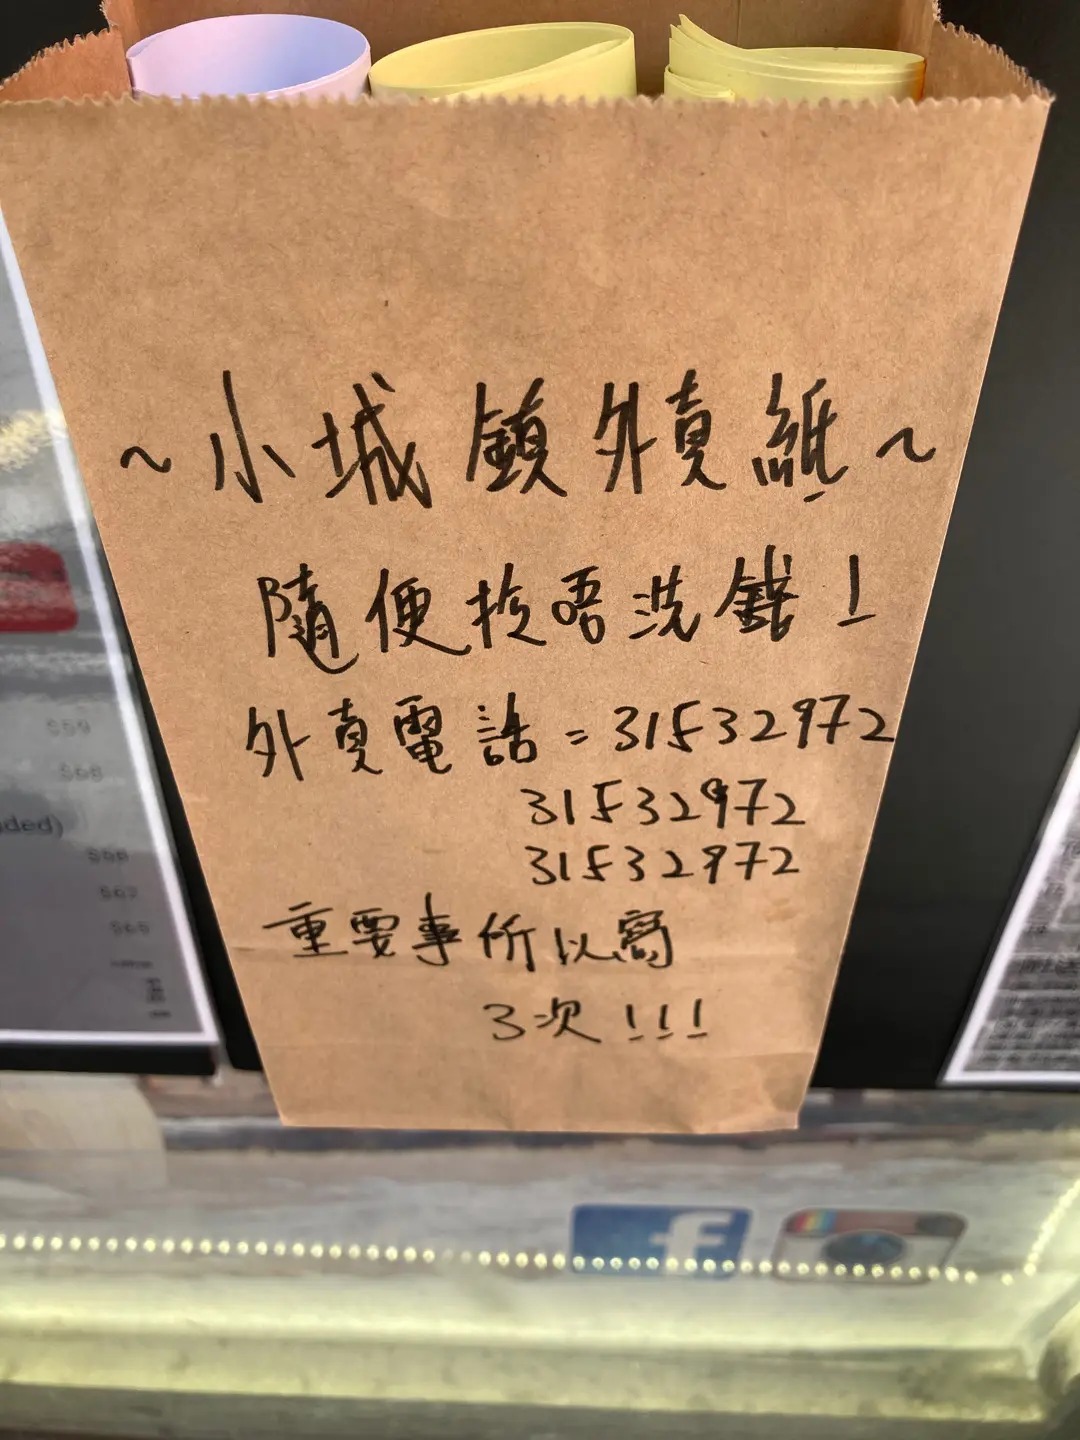 ~小城鎮外賣紙~
隨便拎唔洗錢！
外賣電話=31532972
31532972
31532972
重要事所以寫
3次！！！
$59
$68
ded)
$58
$67
$65
f